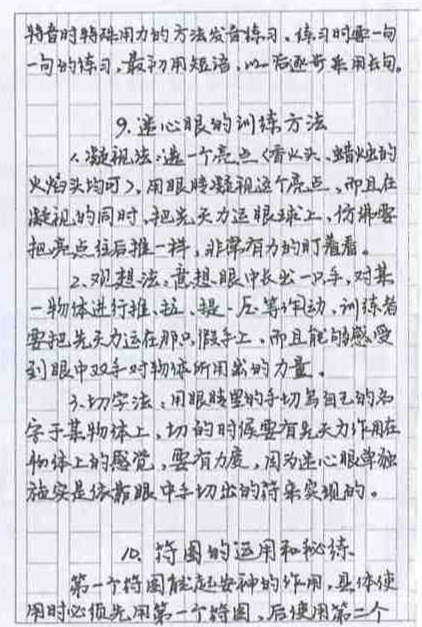 特音时特殊用力的方法发音练习、练习时要一句
一句的练习,最初用短语,以后逐步采用长句。
9.迷心眼的训练方法
1.凝视法:选一个亮点(香火头、蜡烛的
火焰头均可),用眼睛凝视这个亮点,而且在
凝视的同时,把先天力运眼球上,仿拂要
把亮点往后推一样,非常有力的盯着看。
2.观想法:意想眼中长出一只手,对某
一物体进行推、拉、提、压等作动,训练者
要把先天力运在那只假手上,而且能够感受
到眼中双手对物体所用出的力量。
3.切字法:用眼睛里的手切写自己的名
字于某物体上,切的时候要有先天力作用在
物体上的感觉,要有力度,因为迷心眼单独
施实是依靠眼中手切出的符来实现的。
10.符图的运用和秘练
第一个符图能起安神的作用,具体使
用时必须先用第一个符图,后使用第二个